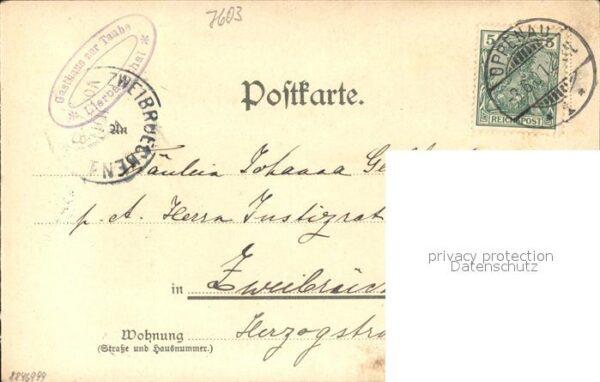 7603
Gasthaus zur Taube
Lierbachthal
ZWEIBRUECKEN
5 5
REICHSPOST
OPPENAU
Postkarte.
An
Fräulein Johanna
p. A. Herrn Justizrat
privacy protection
Datenschutz
in Zweibrück
Wohnung Herzogstra
(Straße und Hausnummer.)
8846999